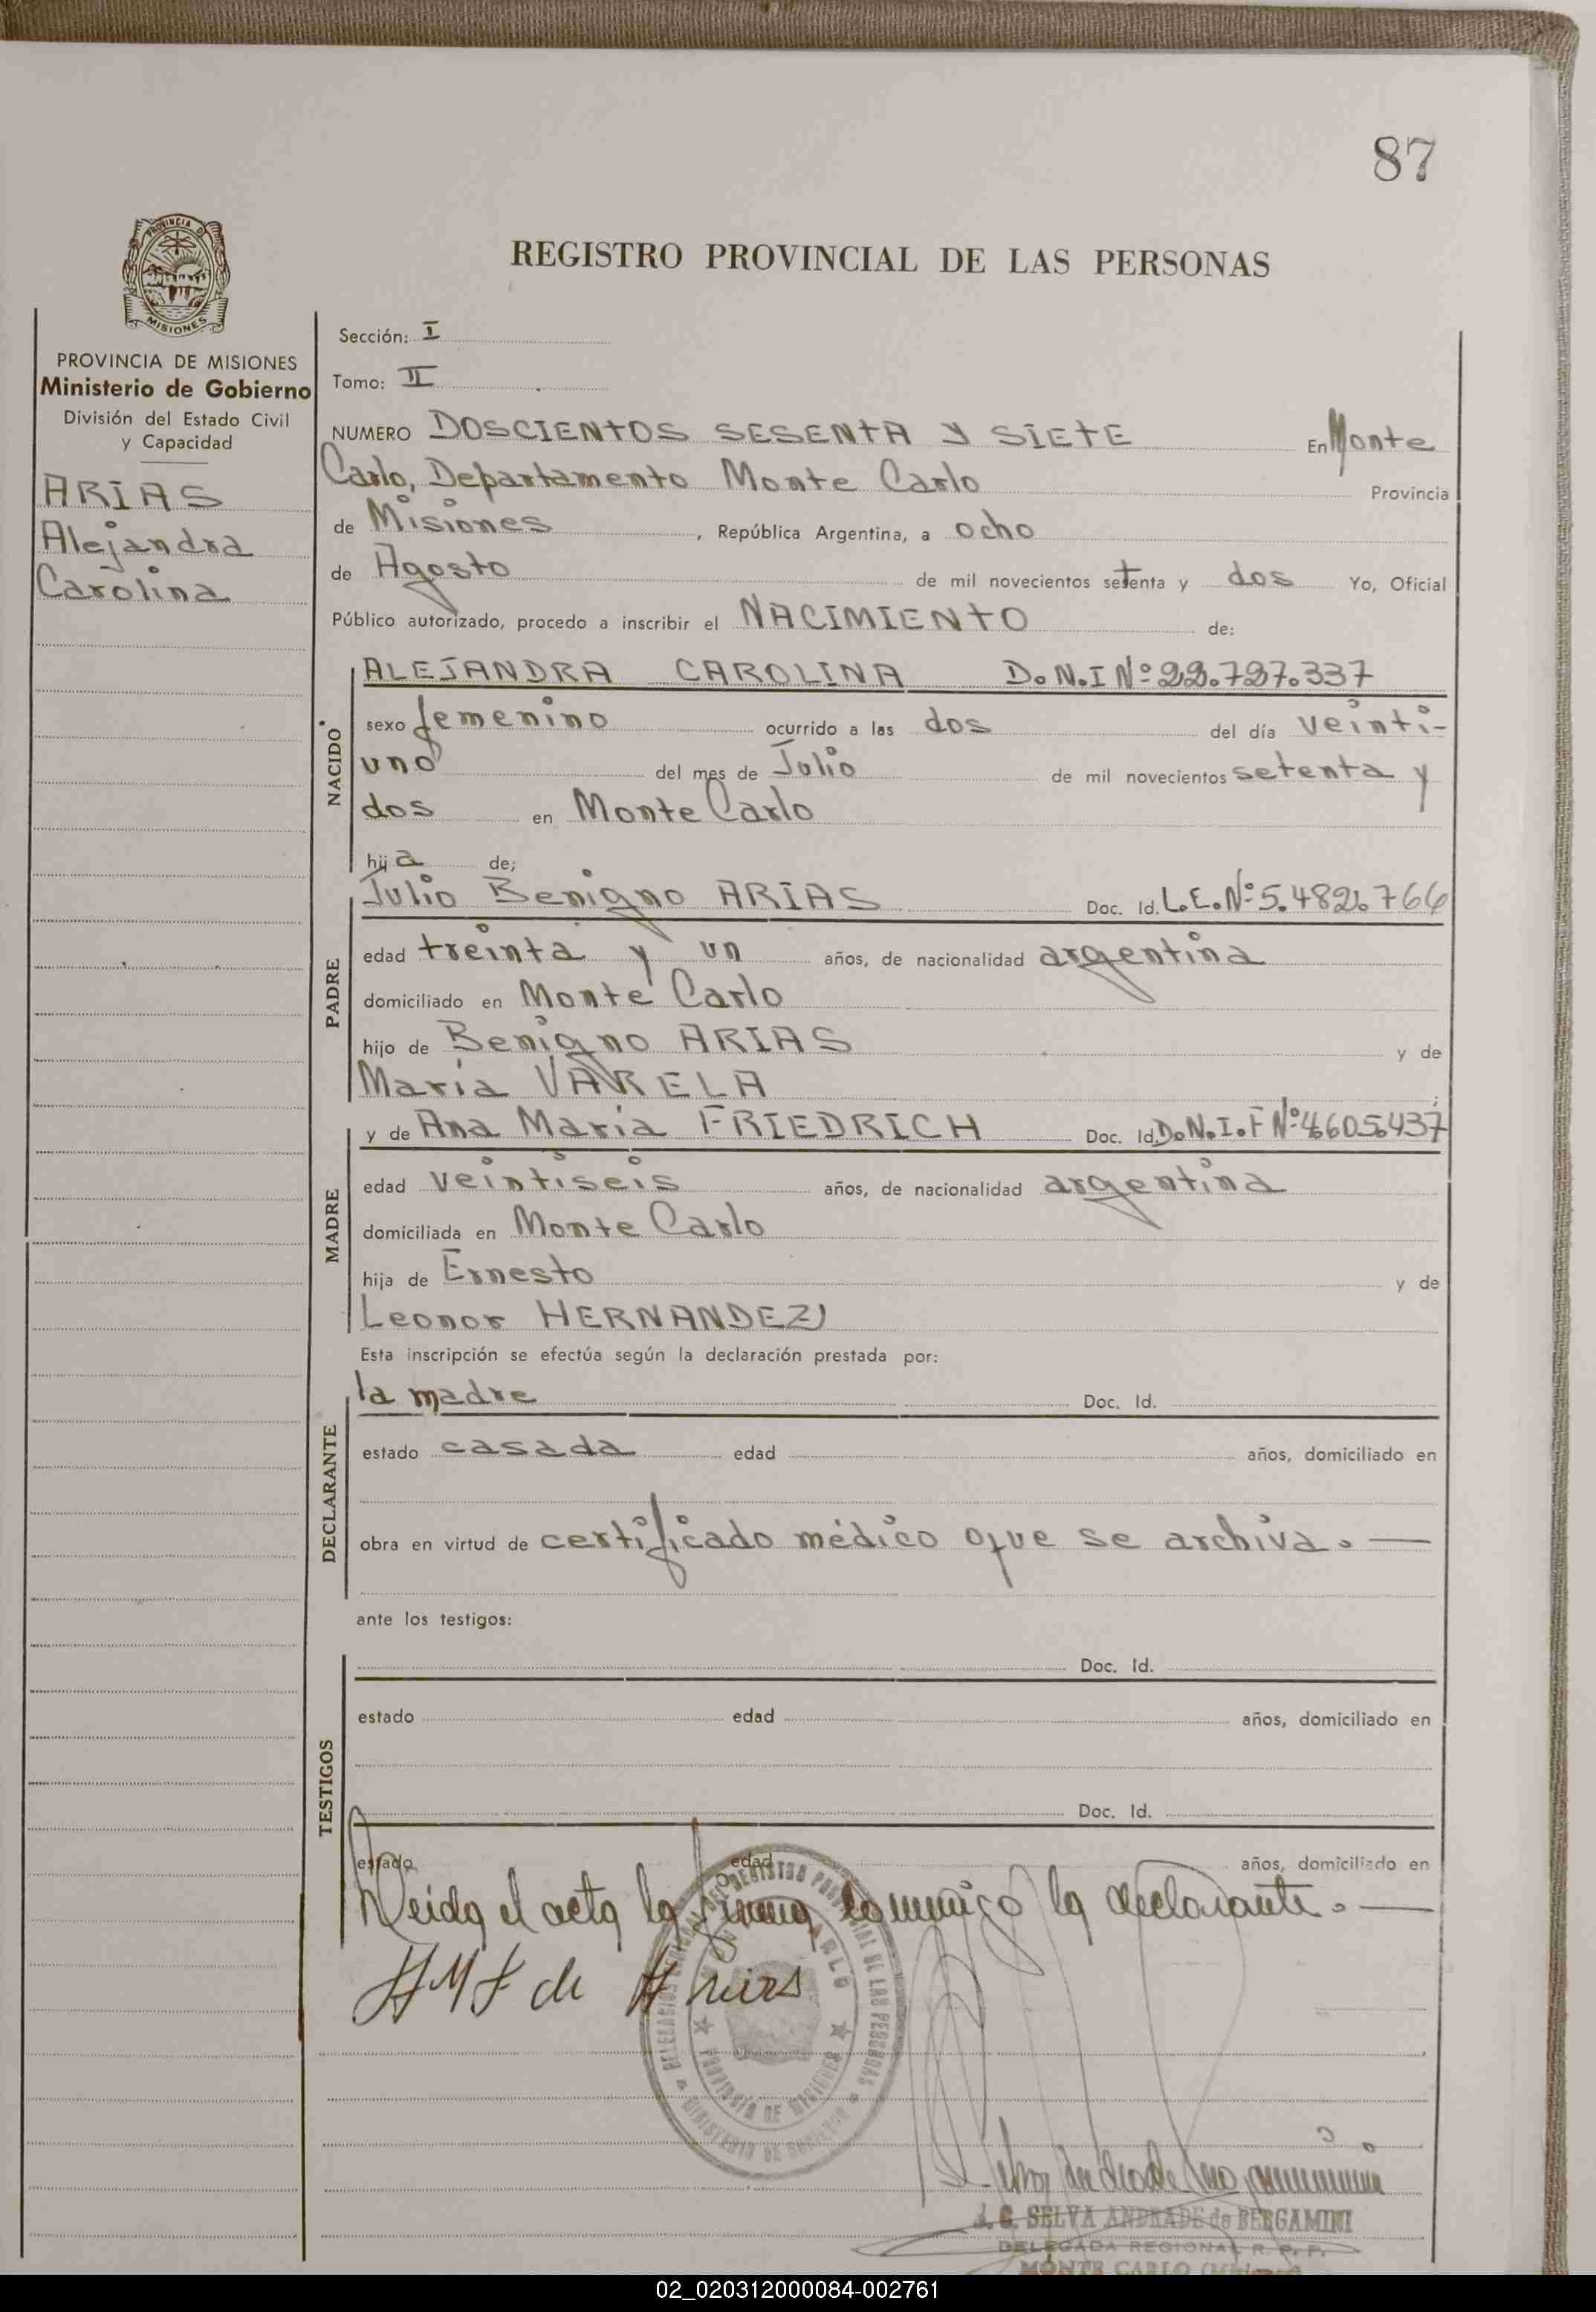 87
REGISTRO PROVINCIAL DE LAS PERSONAS
PROVINCIA DE
MISIONES
PROVINCIA DE MISIONES
Ministerio de Gobierno
División del Estado Civil
y Capacidad
ARIAS
Alejandra
Carolina
Sección: I
Tomo: II
NUMERO DOSCIENTOS SESENTA Y SIETE En Monte
Carlo, Departamento Monte Carlo Provincia
de Misiones, República Argentina, a ocho
de Agosto de mil novecientos setenta y dos Yo, Oficial
Público autorizado, procedo a inscribir el NACIMIENTO de:
NACIDO
ALEJANDRA CAROLINA D.N.I Nº 22.727.337
sexo femenino ocurrido a las dos del día veinti-
uno del mes de Julio de mil novecientos setenta y
dos en Monte Carlo
hija de;
PADRE
Julio Benigno ARIAS Doc. Id. L.E. Nº 5.482.766
edad treinta y un años, de nacionalidad argentina
domiciliado en Monte Carlo
hijo de Benigno ARIAS y de
María VARELA ;
MADRE
y de Ana María FRIEDRICH Doc. Id. D.N.I.F Nº 4.605.437
edad veintiseis años, de nacionalidad argentina
domiciliada en Monte Carlo
hija de Ernesto y de
Leonor HERNANDEZ
Esta inscripción se efectúa según la declaración prestada por:
DECLARANTE
la madre Doc. Id.
estado casada edad años, domiciliado en
obra en virtud de certificado médico que se archiva. —
ante los testigos:
TESTIGOS
Doc. Id.
estado edad años, domiciliado en
Doc. Id.
estado edad años, domiciliado en
Leida el acta la firma conmigo la declarante. —
AMF de Arias
PROVINCIA DE MISIONES
MINISTERIO DE GOBIERNO
J. C. SELVA ANDRADE de BERGAMINI
DELEGADA REGIONAL R. P. P.
MONTE CARLO (Misiones)
02_020312000084-002761